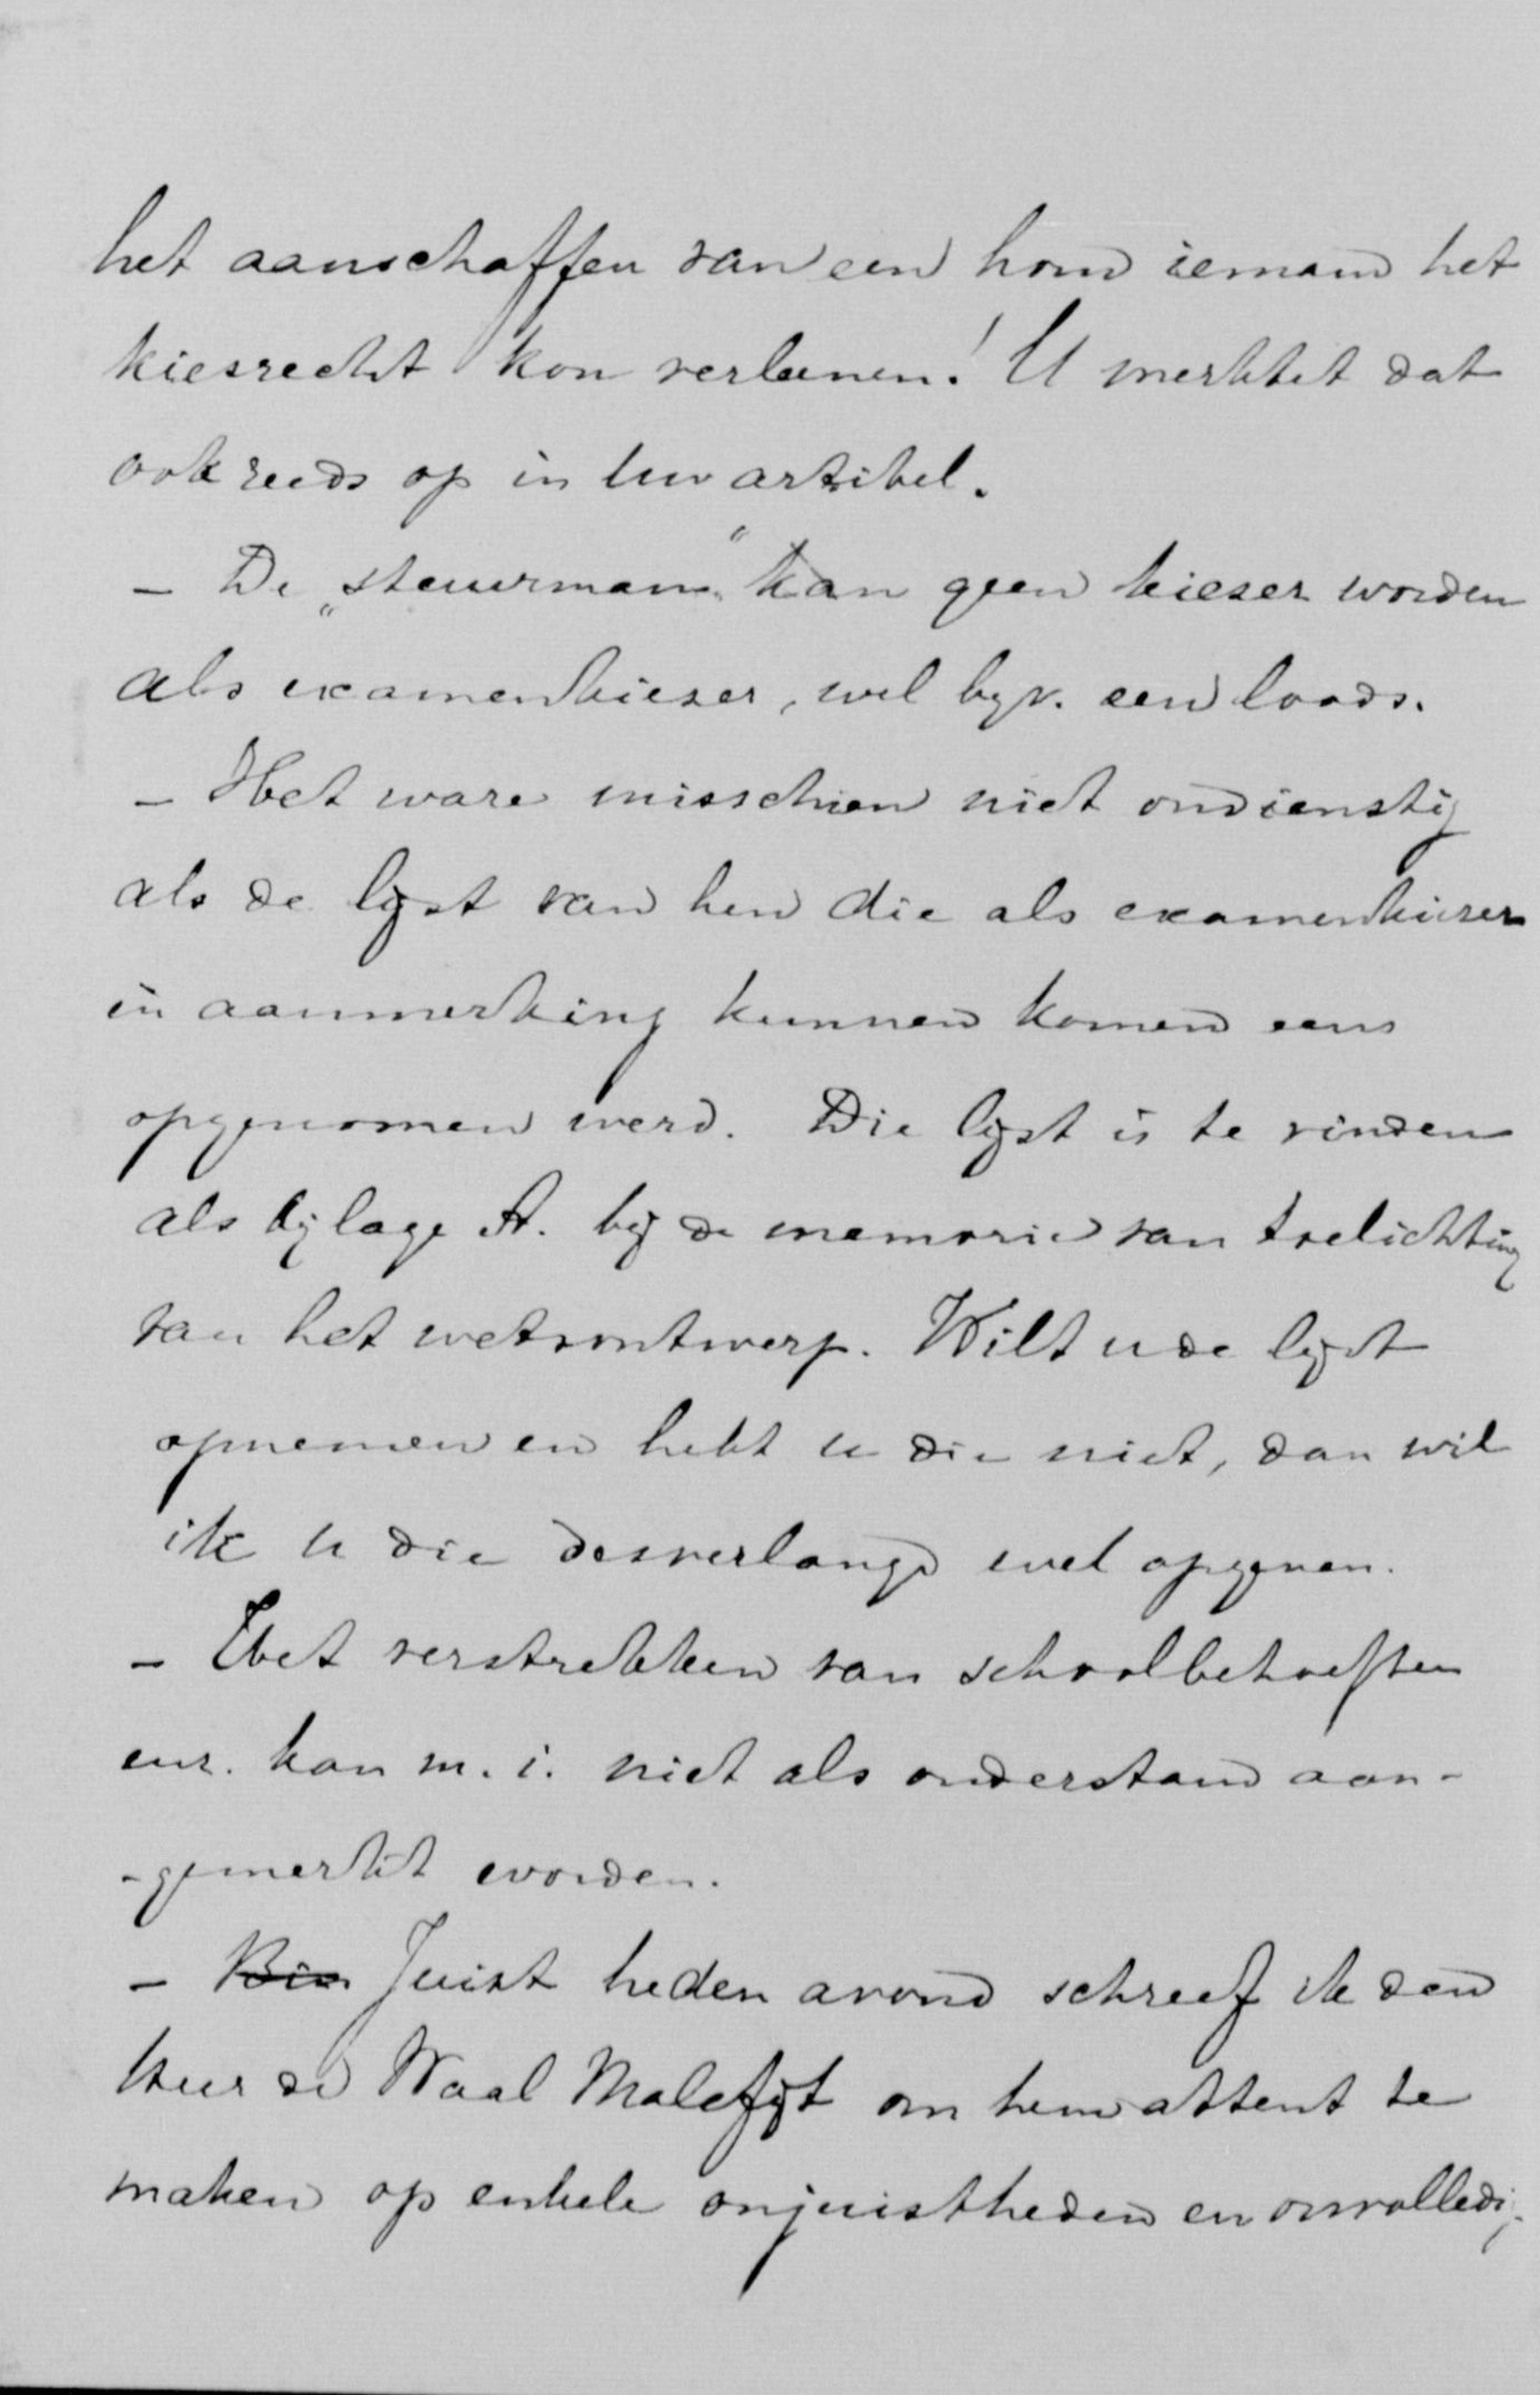 het aanschaffen van een hond iemand het
kiesrecht kon verleenen! U merktet dat
ook reeds op in Uw artikel.
- De „stuurman" kan geen kiezer worden
als examenkiezer, wel bijv. een loods.
- Het ware misschien niet ondienstig
als de lijst van hen die als examenkiezer
in aanmerking kunnen komen eens
opgenomen werd. Die lijst is te vinden
als bijlage A. bij de memorie van toelichting
van het wetsontwerp. Wilt u de lijst
opnemen en hebt u die niet, dan wil
ik u die desverlangd wel opgeven.
- Het verstrekken van schoolbehoeften
enz. kan m.i. niet als onderstand aan-
-gemerkt worden.
- Bin Juist heden avond schreef ik den
heer de Waal Malefijt om hem attent te
maken op enkele onjuistheden en onvolledig-